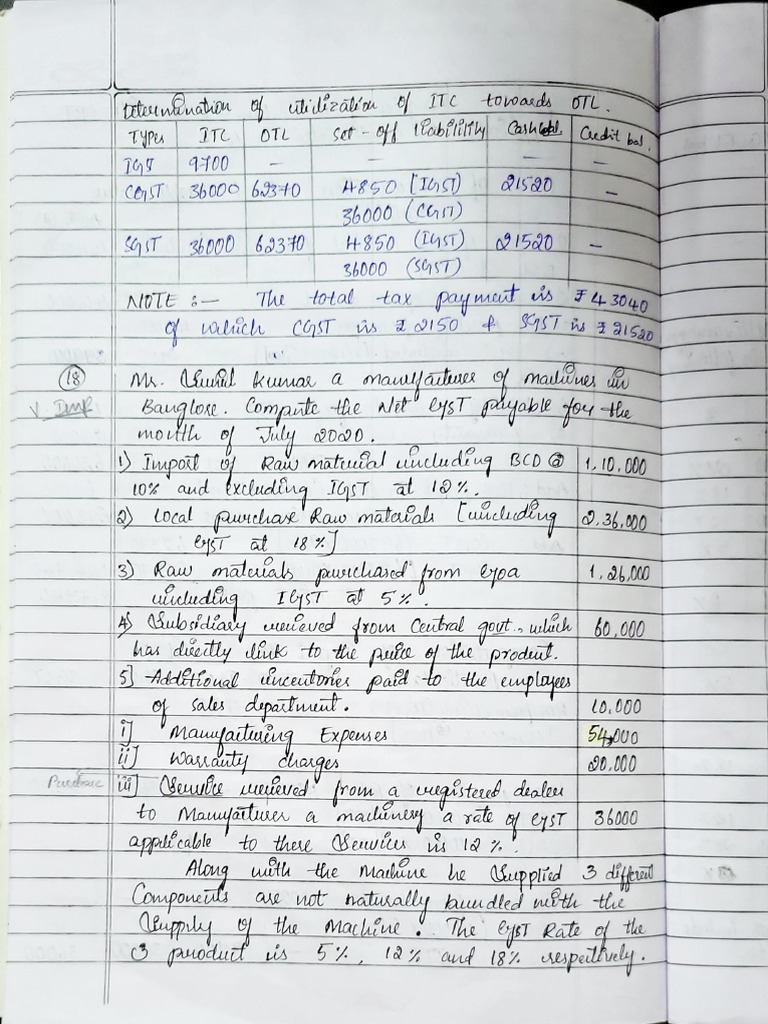 Determination of utilization of ITC towards OTL.
Types ITC OTL Set-off liabilility Cash bal. Credit bal.
IGST 9700 — — — —
CGST 36000 62370 4850 [IGST) 21520 —
36000 (CGST)
SGST 36000 62370 4850 (IGST) 21520 —
36000 (SGST)
NOTE :— The total tax payment is ₹ 43040
of which CGST is ₹ 2150 & SGST is ₹ 21520
18 Mr. Sunil Kumar a manufacturer of machines in
V. Imp Banglore. Compute the Net GST payable for the
month of July 2020.
1) Import of Raw material including BCD @ 1,10,000
10% and excluding IGST at 12%.
2) Local purchase Raw materials [including 2,36,000
GST at 18%]
3) Raw materials purchased from Goa 1,26,000
including IGST at 5%.
4) Subsidiary recieved from Central govt., which 60,000
has directly link to the price of the product.
5] Additional incentories paid to the employees
of sales department. 10,000
i] Manufacturing Expenses 54,000
ii] Warranty charges 20,000
Purchase iii] Service recieved from a registered dealer
to Manufacturer a machinery a rate of GST 36000
applicable to these Services is 12%.
Along with the Machine he Supplied 3 different
Components are not naturally bundled with the
Supply of the Machine. The GST Rate of the
3 product is 5%, 12% and 18% respectively.